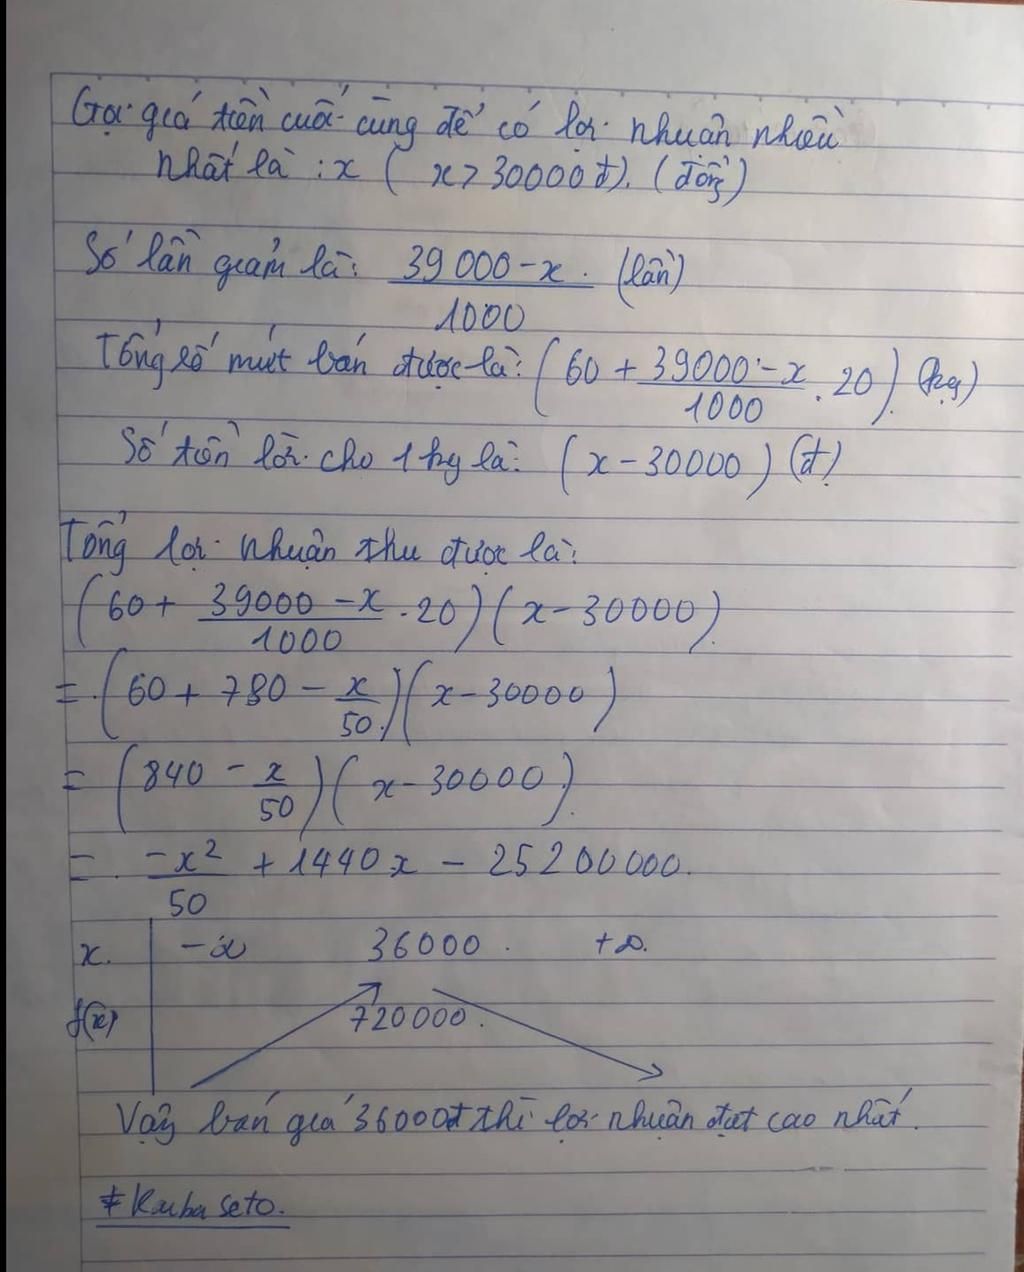 Gọi giá tiền cuối cùng để có lợi nhuận nhiều
nhất là : x ( x > 30000 đ). (đồng)
Số lần giảm là: (39 000 - x)/1000 (lần)
Tổng số mứt bán được là: (60 + (39000 - x)/1000 . 20) (kg)
Số tiền lời cho 1 kg là: (x - 30000) (đ)
Tổng lợi nhuận thu được là:
(60 + (39000 - x)/1000 . 20)(x - 30000)
= (60 + 780 - x/50)(x - 30000)
= (840 - x/50)(x - 30000)
= -x²/50 + 1440x - 25200000.
x. -∞ 36000 +∞.
f(x) 720000.
Vậy bán giá 36000đ thì lợi nhuận đạt cao nhất.